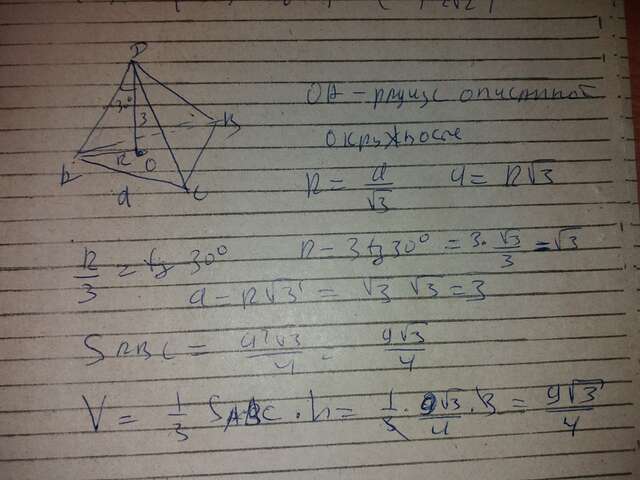 D
30°
3
B
R O
A
a
C
OA – радиус описанной
окружности
R = a/√3 a = R√3
R/3 = tg 30° R = 3 tg 30° = 3 · √3/3 = √3
a = R√3 = √3 √3 = 3
S ABC = a²√3/4 = 9√3/4
V = 1/3 S ABC · h = 1/3 · 9√3/4 · 3 = 9√3/4